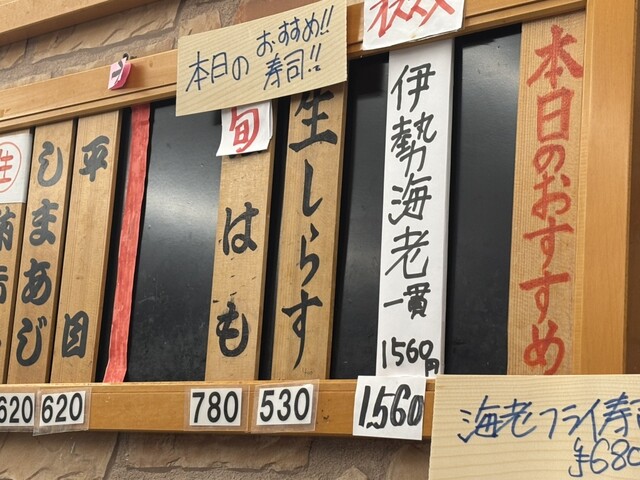 本日のおすすめ
オススメ
伊勢海老
一貫
1560円
本日の おすすめ!!
寿司!!
生しらす
旬
はも
平目
しまあじ
生
620
620
780
530
1,560
海老フライ寿司
¥680